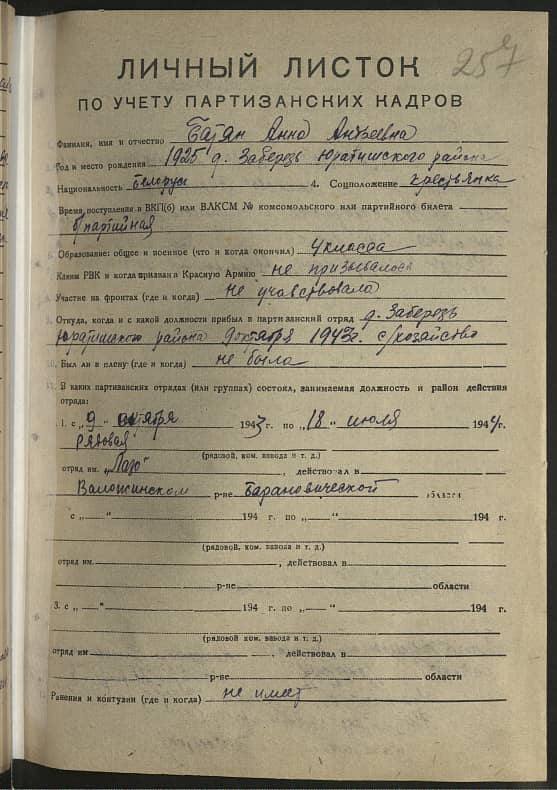 257
ЛИЧНЫЙ ЛИСТОК
ПО УЧЕТУ ПАРТИЗАНСКИХ КАДРОВ
Фамилия, имя и отчество Батян Анна Андреевна
Год и место рождения 1925 д. Заберезь Юратишского района
2. Национальность белорус 4. Соцположение крестьянка
Время поступления в ВКП(б) или ВЛКСМ № комсомольского или партийного билета
б/партийная
Образование: общее и военное (что и когда окончил) 4 класса
Каким РВК и когда призван в Красную Армию не призывалась
Участие на фронтах (где и когда) не учавствовала
Откуда, когда и с какой должности прибыл в партизанский отряд д. Заберезь
Юратишского района 9 октября 1943 г. с/хозяйство
Был ли в плену (где и когда) не была
В каких партизанских отрядах (или группах) состоял, занимаемая должность и район действия
отряда:
1. с „9" октября 1943 г. по „18" июля 1944 г.
рядовая
(рядовой, ком. взвода и т. д.)
отряд им. „Лазо", действовал в
Воложинском р-не Барановической области
с „ " 194 г. по „ " 194 г.
(рядовой, ком. взвода и т. д.)
отряд им. , действовал в
р-не области
3. с „ " 194 г. по „ " 194 г.
(рядовой, ком. взвода и т. д.)
отряд им , действовал в
р-не области
Ранения и контузии (где и когда) не имеет